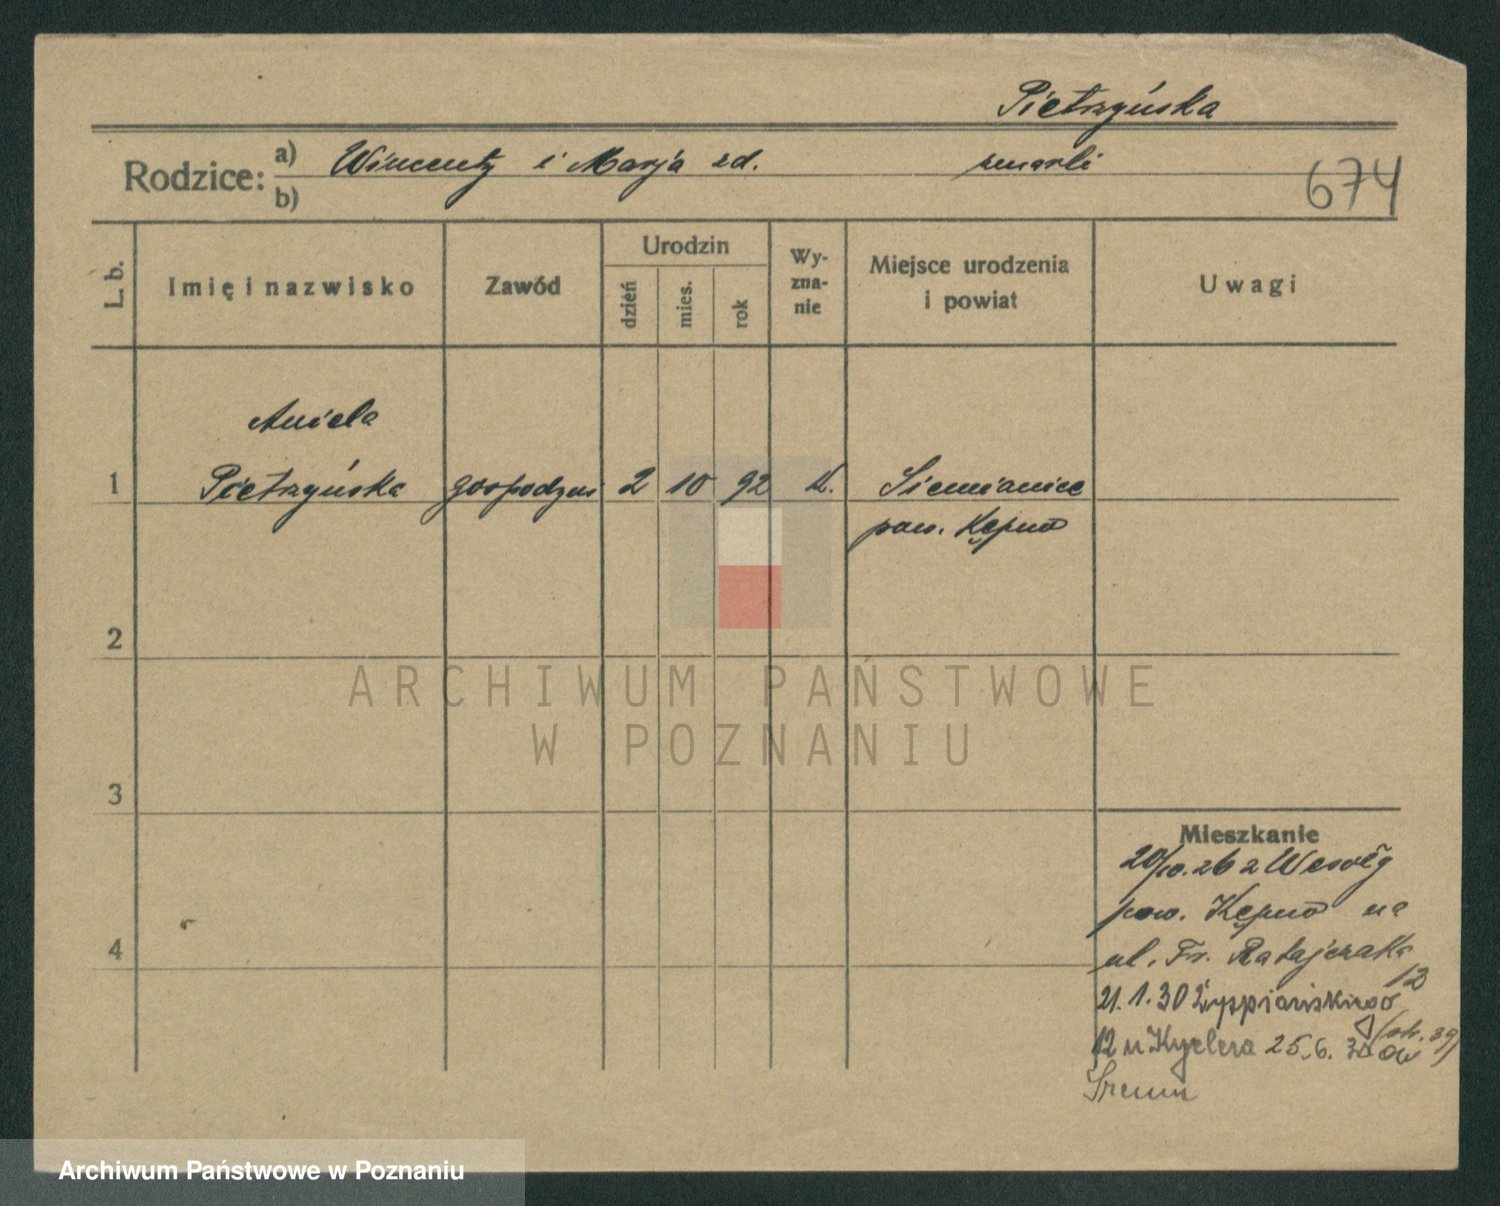 Pietrzyńska
Rodzice: a) Wincenty i Marja zd. zmarli
b)
674
L. b.
Imię i nazwisko
Zawód
Urodzin
dzień
mies.
rok
Wy-
zna-
nie
Miejsce urodzenia
i powiat
Uwagi
Aniela
1 Pietrzyńska gospodyni 2 10 92 k. Siemianice
pow. Kępno
2
3
4
ARCHIWUM PAŃSTWOWE
W POZNANIU
Mieszkanie
20/10.26 z
pow. Kępno na
ul. Fr. Ratajczaka
12
21.1.30 Wyspiańskiego
12 u 25.6.
Śremu
Archiwum Państwowe w Poznaniu